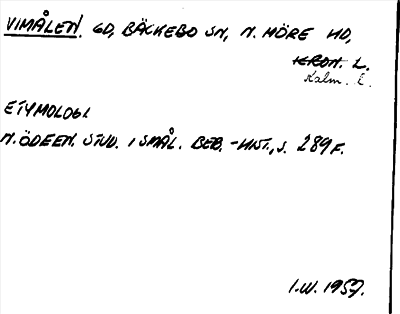 VIMÅLEN. GD, BÄCKEBO SN, N. MÖRE HD,
KRON. L.
Kalm. l.
ETYMOLOGI
N. ÖDEEN. STUD. I SMÅL. BEB.-HIST., S. 289 F.
I.W. 1957.